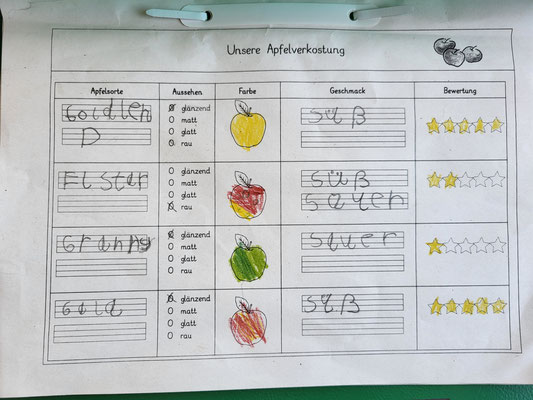 Unsere Apfelverkostung
Apfelsorte Aussehen Farbe Geschmack Bewertung
Goldlen
D
glänzend
matt
glatt
rau
süß
Elstar
glänzend
matt
glatt
rau
süß
sauer
Granny
glänzend
matt
glatt
rau
sauer
Gala
glänzend
matt
glatt
rau
süß